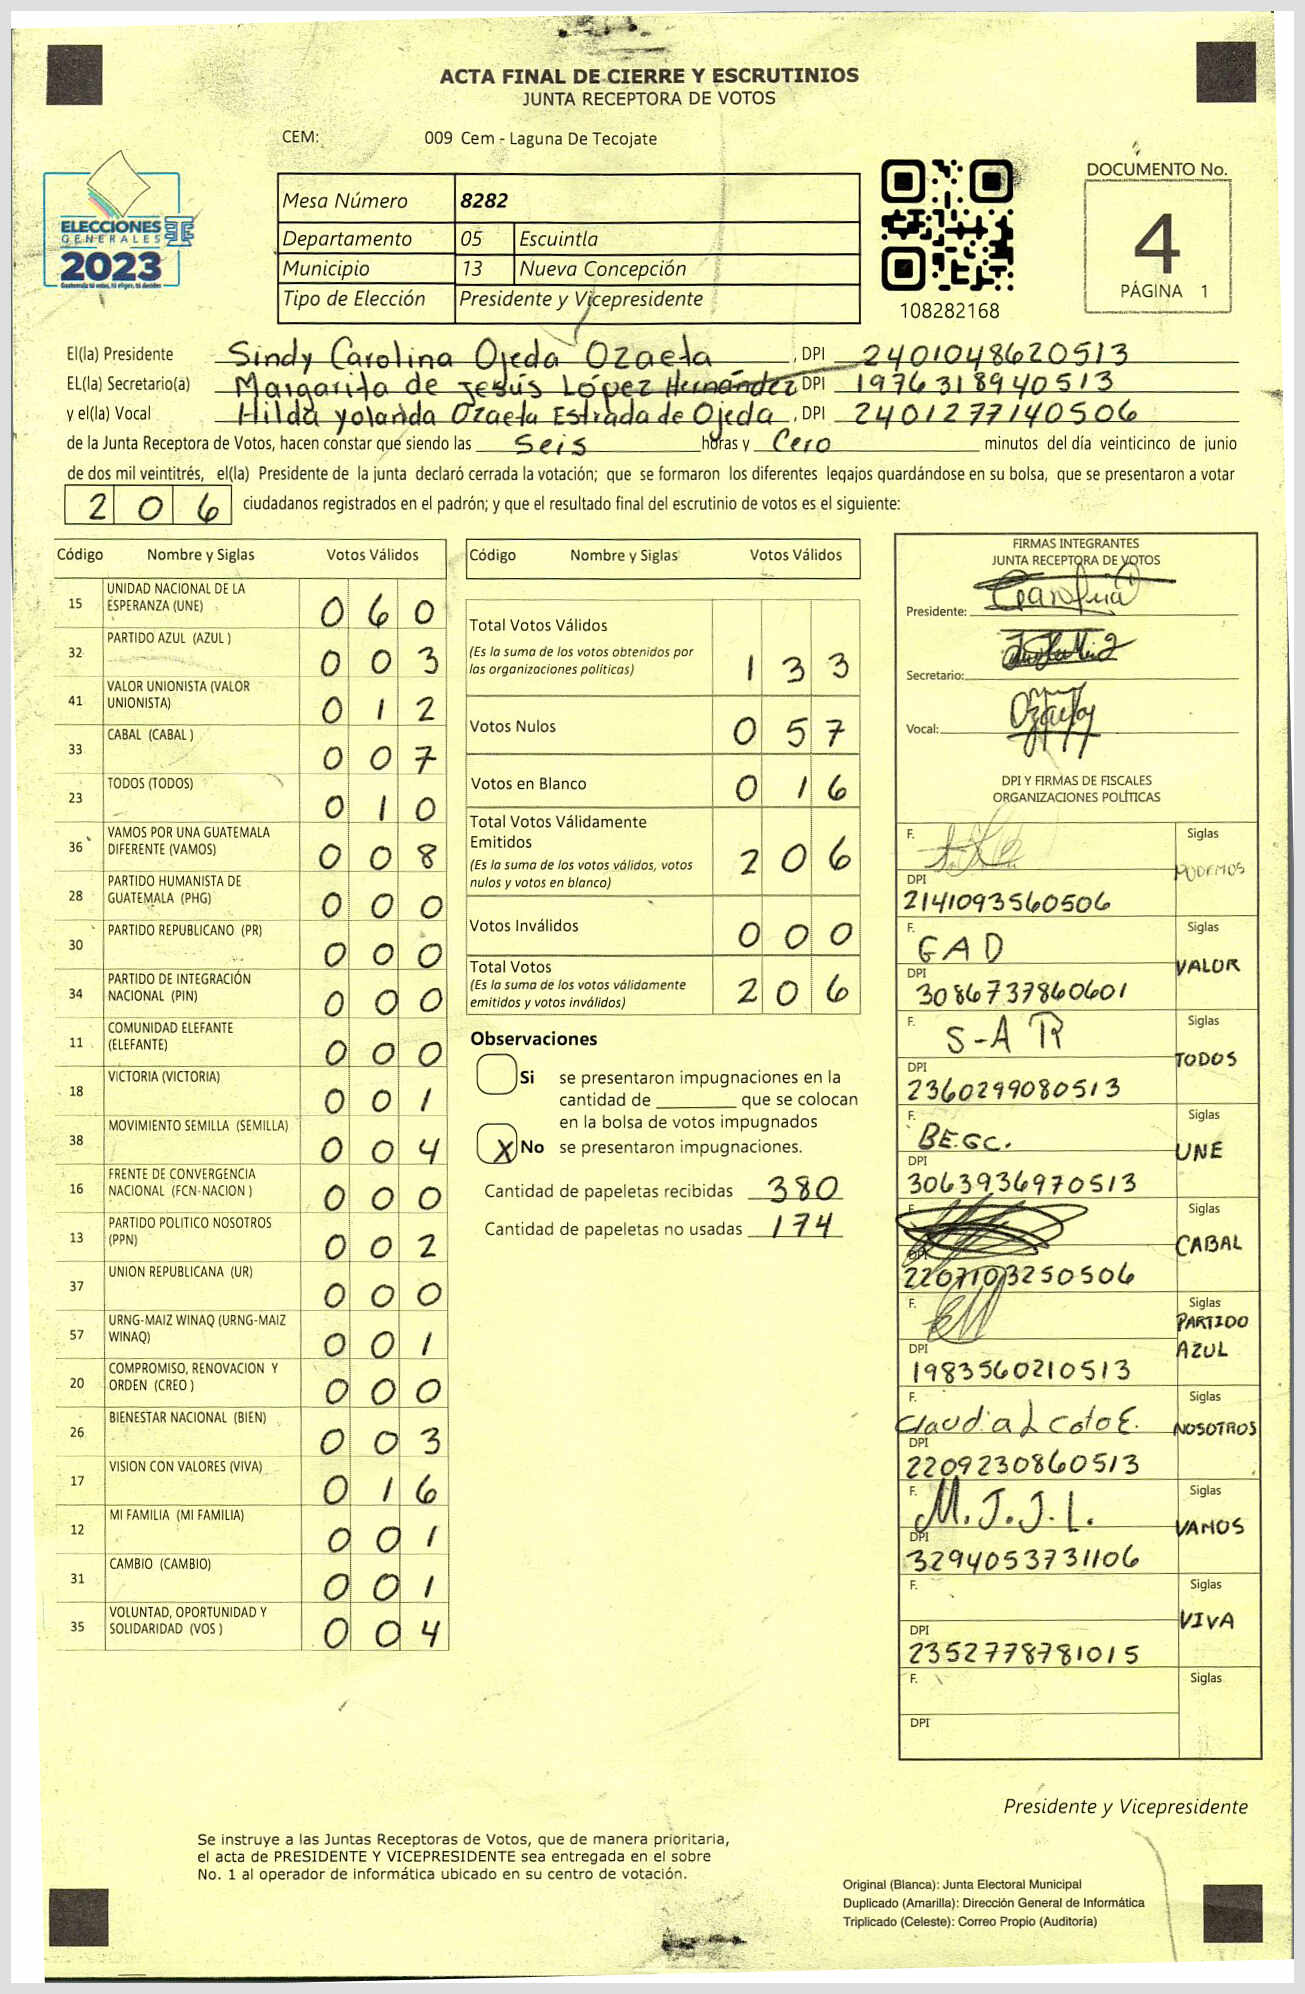 ACTA FINAL DE CIERRE Y ESCRUTINIOS
JUNTA RECEPTORA DE VOTOS
CEM: 009 Cem - Laguna De Tecojate
ELECCIONES
GENERALES
2023
Guatemala tú votas, tú eliges, tú decides
Mesa Número 8282
Departamento 05 Escuintla
Municipio 13 Nueva Concepción
Tipo de Elección Presidente y Vicepresidente
108282168
DOCUMENTO No.
4
PÁGINA 1
El(la) Presidente Sindy Carolina Ojeda Ozaeta, DPI 2401048620513
EL(la) Secretario(a) Margarita de Jesús López Hernández DPI 1976318940513
y el(la) Vocal Hilda Yolanda Ozaeta Estrada de Ojeda, DPI 2401277140506
de la Junta Receptora de Votos, hacen constar que siendo las Seis horas y Cero minutos del día veinticinco de junio
de dos mil veintitrés, el(la) Presidente de la junta declaró cerrada la votación; que se formaron los diferentes legajos quardándose en su bolsa, que se presentaron a votar
206 ciudadanos registrados en el padrón; y que el resultado final del escrutinio de votos es el siguiente:
Código Nombre y Siglas Votos Válidos
15 UNIDAD NACIONAL DE LA ESPERANZA (UNE) 060
32 PARTIDO AZUL (AZUL ) 003
41 VALOR UNIONISTA (VALOR UNIONISTA) 012
33 CABAL (CABAL ) 007
23 TODOS (TODOS) 010
36 VAMOS POR UNA GUATEMALA DIFERENTE (VAMOS) 008
28 PARTIDO HUMANISTA DE GUATEMALA (PHG) 000
30 PARTIDO REPUBLICANO (PR) 000
34 PARTIDO DE INTEGRACIÓN NACIONAL (PIN) 000
11 COMUNIDAD ELEFANTE (ELEFANTE) 000
18 VICTORIA (VICTORIA) 001
38 MOVIMIENTO SEMILLA (SEMILLA) 004
16 FRENTE DE CONVERGENCIA NACIONAL (FCN-NACION ) 000
13 PARTIDO POLITICO NOSOTROS (PPN) 002
37 UNION REPUBLICANA (UR) 000
57 URNG-MAIZ WINAQ (URNG-MAIZ WINAQ) 001
20 COMPROMISO, RENOVACION Y ORDEN (CREO ) 000
26 BIENESTAR NACIONAL (BIEN) 003
17 VISION CON VALORES (VIVA) 016
12 MI FAMILIA (MI FAMILIA) 001
31 CAMBIO (CAMBIO) 001
35 VOLUNTAD, OPORTUNIDAD Y SOLIDARIDAD (VOS ) 004
Código Nombre y Siglas Votos Válidos
Total Votos Válidos
(Es la suma de los votos obtenidos por
las organizaciones políticas) 133
Votos Nulos 057
Votos en Blanco 016
Total Votos Válidamente
Emitidos
(Es la suma de los votos válidos, votos
nulos y votos en blanco) 206
Votos Inválidos 000
Total Votos
(Es la suma de los votos válidamente
emitidos y votos inválidos) 206
Observaciones
Si se presentaron impugnaciones en la
cantidad de ________ que se colocan
en la bolsa de votos impugnados
X No se presentaron impugnaciones.
Cantidad de papeletas recibidas 380
Cantidad de papeletas no usadas 174
FIRMAS INTEGRANTES
JUNTA RECEPTORA DE VOTOS
Presidente:
Secretario:
Vocal:
DPI Y FIRMAS DE FISCALES
ORGANIZACIONES POLÍTICAS
F. Siglas
PODEMOS
DPI
2141093560506
F. GAD Siglas
VALOR
DPI
3086737860601
F. S-AR Siglas
TODOS
DPI
2360299080513
F. BE.GC. Siglas
UNE
DPI
3063936970513
F. Siglas
CABAL
DPI
2207103250506
F. Siglas
PARTIDO
AZUL
DPI
1983560210513
F. Claudia L Coto E. Siglas
NOSOTROS
DPI
2209230860513
F. M.J.J.L. Siglas
VAMOS
DPI
3294053731106
F. Siglas
VIVA
DPI
2352778781015
F. Siglas
DPI
Presidente y Vicepresidente
Se instruye a las Juntas Receptoras de Votos, que de manera prioritaria,
el acta de PRESIDENTE Y VICEPRESIDENTE sea entregada en el sobre
No. 1 al operador de informática ubicado en su centro de votación.
Original (Blanca): Junta Electoral Municipal
Duplicado (Amarilla): Dirección General de Informática
Triplicado (Celeste): Correo Propio (Auditoría)